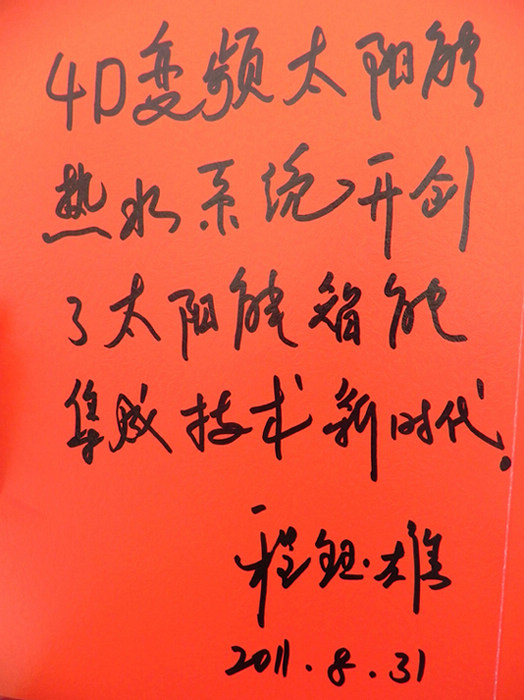 4D变频太阳能
热水系统开创
了太阳能智能
集成技术新时代.
程钽雄
2011.8.31